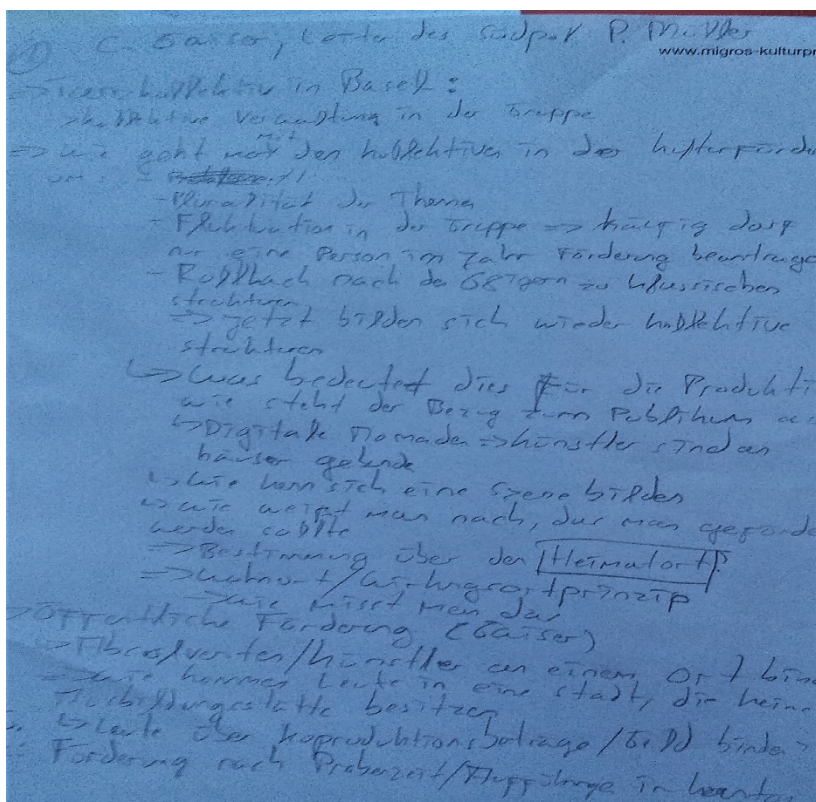 C. Gaiser, Lotta des Südpol P. Müller
www.migros-kulturpr
kollektiv in Basel:
kollektive Verwaltung in der Gruppe
=> wie geht man mit den Kollektiven in der Kulturförde
um:
- Pluralität der Themen
- Fluktuation in der Gruppe => häufig darf
nur eine Person im Jahr Förderung beantrage
- Rollback nach den 68igern zu klassischen
Strukturen
=> jetzt bilden sich wieder kollektive
Strukturen
↳ Was bedeutet dies für die Produkti
wie steht der Bezug zum Publikum
↳ Digitale Nomaden => Künstler sind an
Häuser gebunde
↳ wie kann sich eine Szene bilden
↳ wie weist man nach, das man geförde
werden sollte
=> Bestimmung über den Heimatort?
=> Wohnort/Wirkungsortprinzip
=> wie misst man das
Öffentliche Förderung (Gaiser)
Absolventen/Künstler an einem Ort bind
=> wie kommen Leute in eine Stadt, die keine
Ausbildungsstätte besitzen
↳ Leute über Koproduktionsbeträge/Geld binden
Förderung nach Probenzeit/Aufführunge in